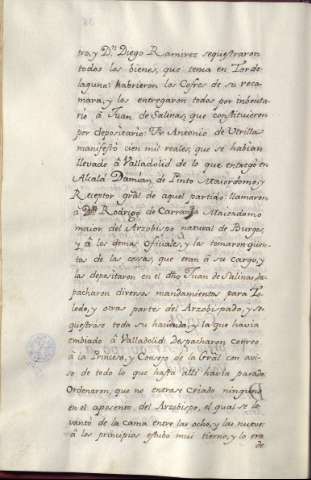 tro, y Dⁿ. Diego Ramirez sequestraron
todos los bienes, que tenia en Torde
laguna: habrieron los Cofres de su reca
mara, y los entregaron todos por inbenta
rio â Juan de Salinas, que constituieron
por depositario: Fr. Antonio de Utrilla
manifestó cien mil reales, que se habian
llevado â Valladolid de lo que entregó en
Alcalá Damian, de Pinto Maiordomo, y
Rezeptor gral de aquel partido: llamaron
â Dⁿ. Rodrigo de Carranza Maiordomo
maior del Arzobispo natural de Burgos,
y â los demas Oficiales, y la tomaron quen
ta de las cosas, que eran â su cargo, y
las depositaron en el dho Juan de Salinas, des
pacharon diversos mandamientos para To
ledo, y otras partes del Arzobispado, y se
questrase toda su hacienda, y la que havia
embiado â Valladolid: Despacharon Correo
â la Princesa, y Consejo de la Gral con avi
so de todo lo que hasta alli havia pasado
Ordenaron, que no entrase criado ninguno
en el aposento del Arzobispo, el qual se le
vantó de la cama entre las ocho, y las nueve
â los principios estubo mui tierno, y lo era
de